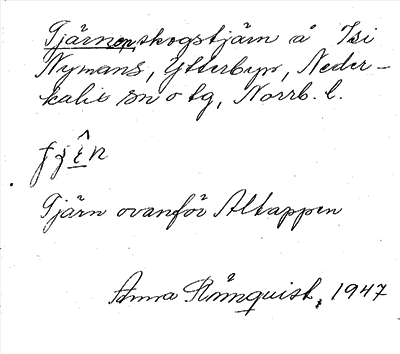 Tjärnen, skogstjärn å Isi
Nymans, Ytterbyn, Neder-
kalix sn o tg, Norrb. l.
Tjärn ovanför Altappen
Anna Rönnquist, 1947